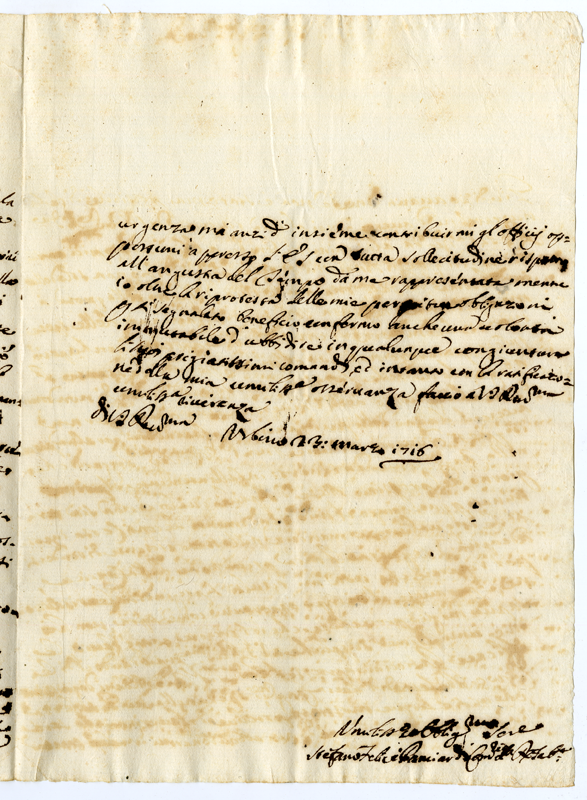 urgenza mi anzi d' insieme contribuirmi gl' officij op=
portuni appresso S. E. con tutta sollecitudine
all' angustia del tempo da me rappresentata mentre
io oltre la riprotesta delle mie perpetue obligazioni
segnalato beneficio confermo anche una volontà
immutabile d' ubbidire in qualunque congiuntura
li suoi preziatissimi comandi, ed intanto con la ratificazio=
ne della mia umiliss.ma osservanza faccio a V. S. Rev.ma
umiliss.a riverenza
Di V. S. Rev.ma
Urbino 23: Marzo 1716
Umiliss.o et Obblig.mo Ser.e
Stefano Felice